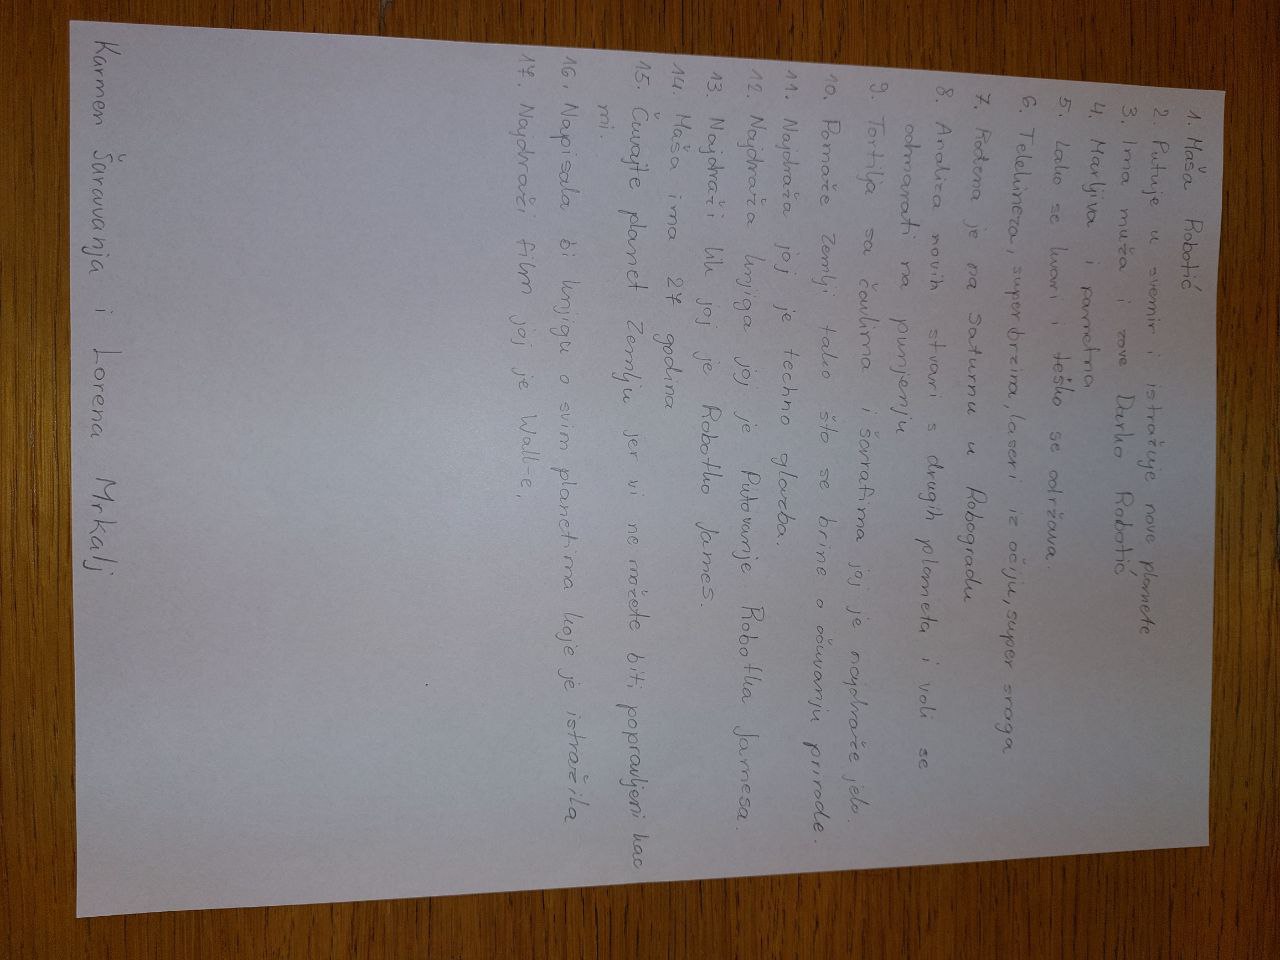 1. Maša Robotić
2. Putuje u svemir i istražuje nove planete
3. Ima muža i zove Darko Robotić
4. Marljiva i pametna
5. Lako se kvari i teško se održava.
6. Telekineza, super brzina, laseri iz očiju, super snaga
7. Rođena je na Saturnu u Robogradu
8. Analiza novih stvari s drugih planeta i voli se
odmarati na punjenju
9. Tortilja sa čavlima i šarafima joj je najdraže jelo.
10. Pomaže Zemlji tako što se brine o očuvanju prirode.
11. Najdraža joj je techno glazba.
12. Najdraža knjiga joj je Putovanje Robotka Jamesa.
13. Najdraži lik joj je Robotko James.
14. Maša ima 27 godina
15. Čuvajte planet Zemlju jer vi ne možete biti popravljeni kao
mi.
16. Napisala bi knjigu o svim planetima koje je istražila
17. Najdraži film joj je Wall-e.
Karmen Šaravanja i Lorena Mrkalj